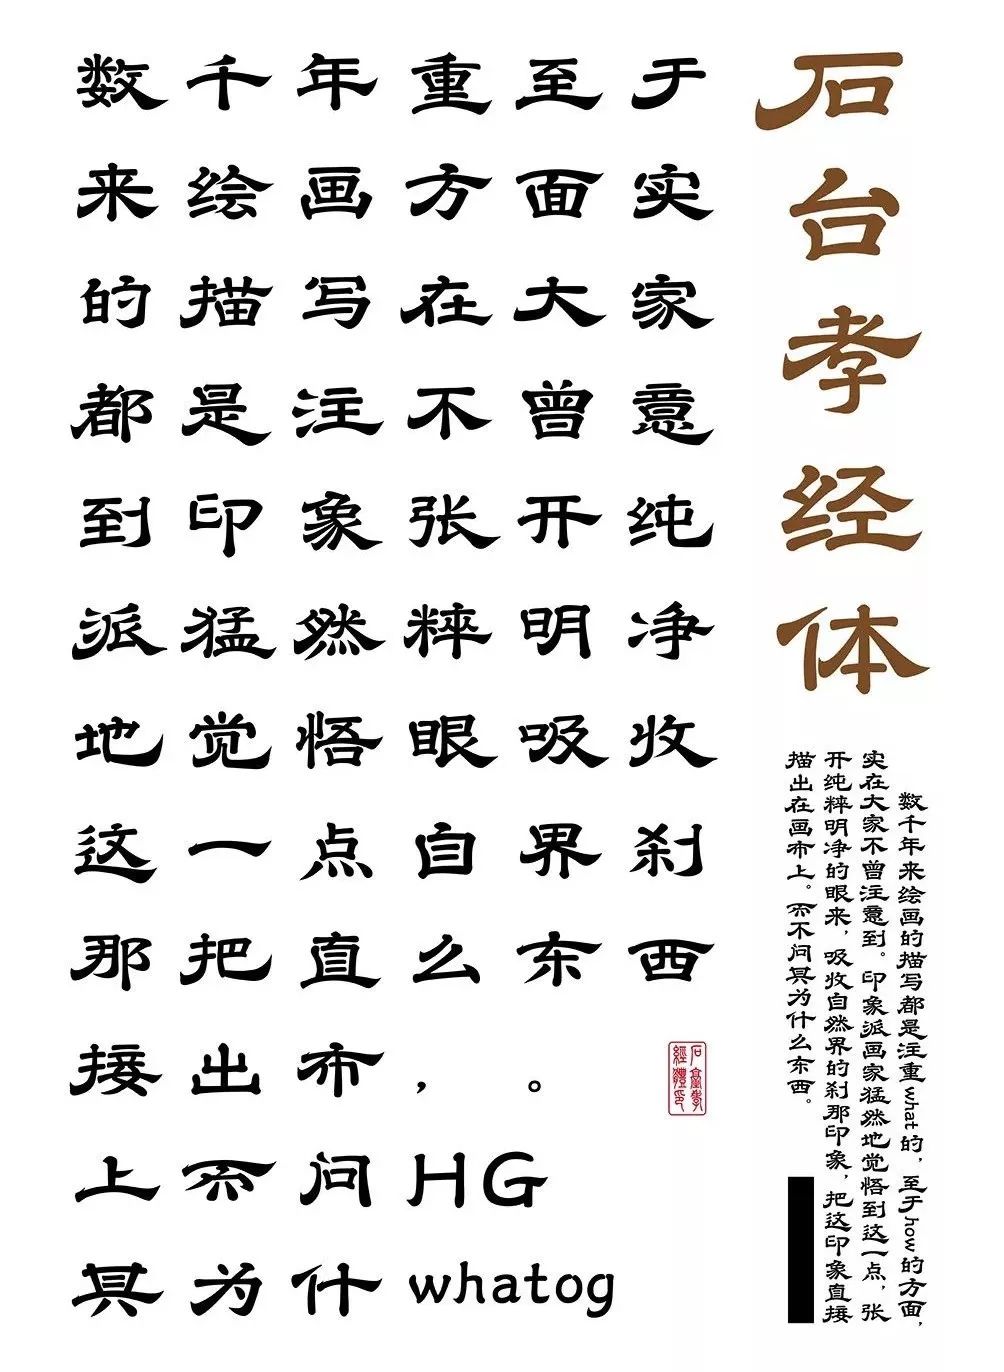 石台孝经体
数千年重至于
来绘画方面实
的描写在大家
都是注不曾意
到印象张开纯
派猛然粹明净
地觉悟眼吸收
这一点自界刹
那把直么东西
接出布，。
上而问HG
其为什whatog
数千年来绘画的描写都是注重what的，至于how的方面，
实在大家不曾注意到。印象派画家猛然地觉悟到这一点，张
开纯粹明净的眼来，吸收自然界的刹那印象，把这印象直接
描出在画布上。而不问其为什么东西。
石臺孝
經體印